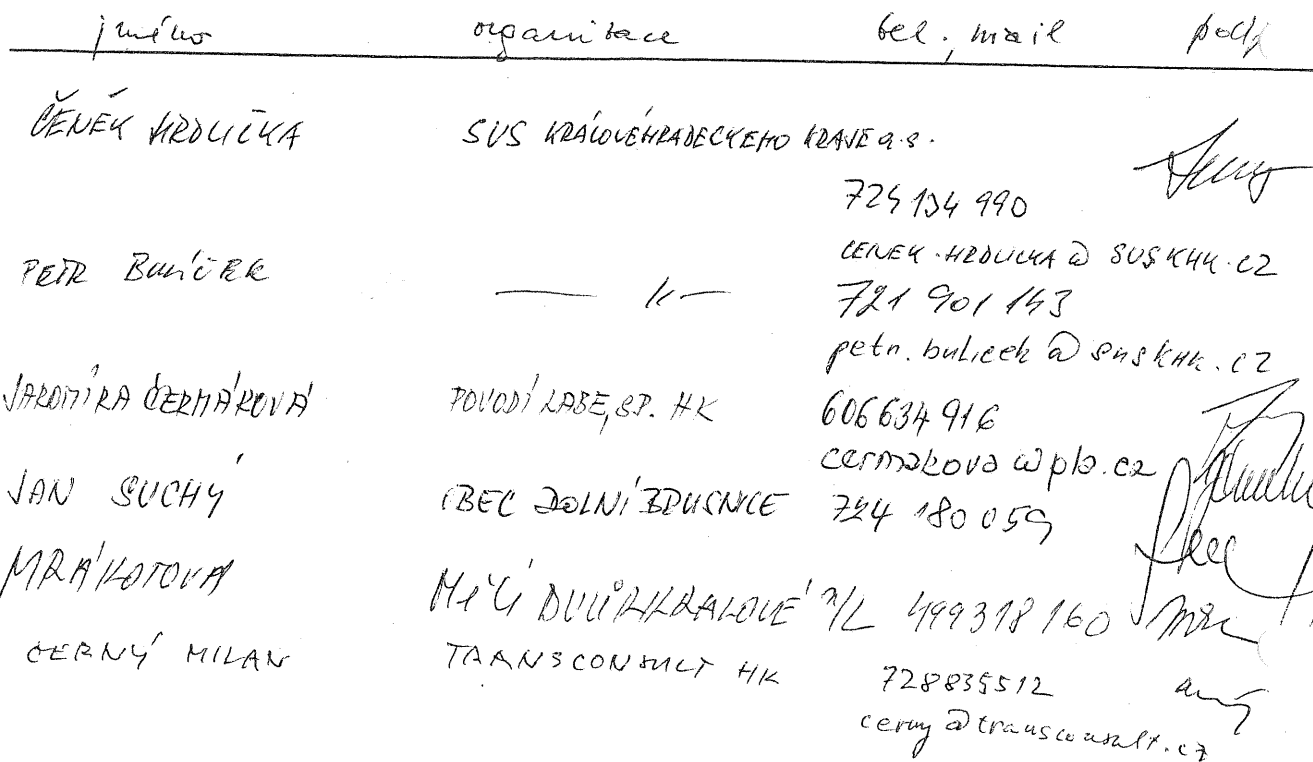 jméno organizace tel., mail podp
ČENĚK HRDLIČKA SUS KRÁLOVÉHRADECKEHO KRAJE a.s.
724 134 990
PETR BULÍČEK CENEK.HRDLICKA@SUSKHK.CZ
—— 〃 —— 721 901 143
petr.bulicek@suskhk.cz
JAROMÍRA ČERMÁKOVÁ POVODÍ LABE, SP. HK 606 634 916
cermakova@pla.cz
JAN SUCHÝ OBEC DOLNÍ BRUSNICE 724 180 059
MRÁKOTOVÁ MěÚ DVŮR KRÁLOVÉ n/L 499318160
ČERNÝ MILAN TRANSCONSULT HK 728835512
cerny@transconsult.cz